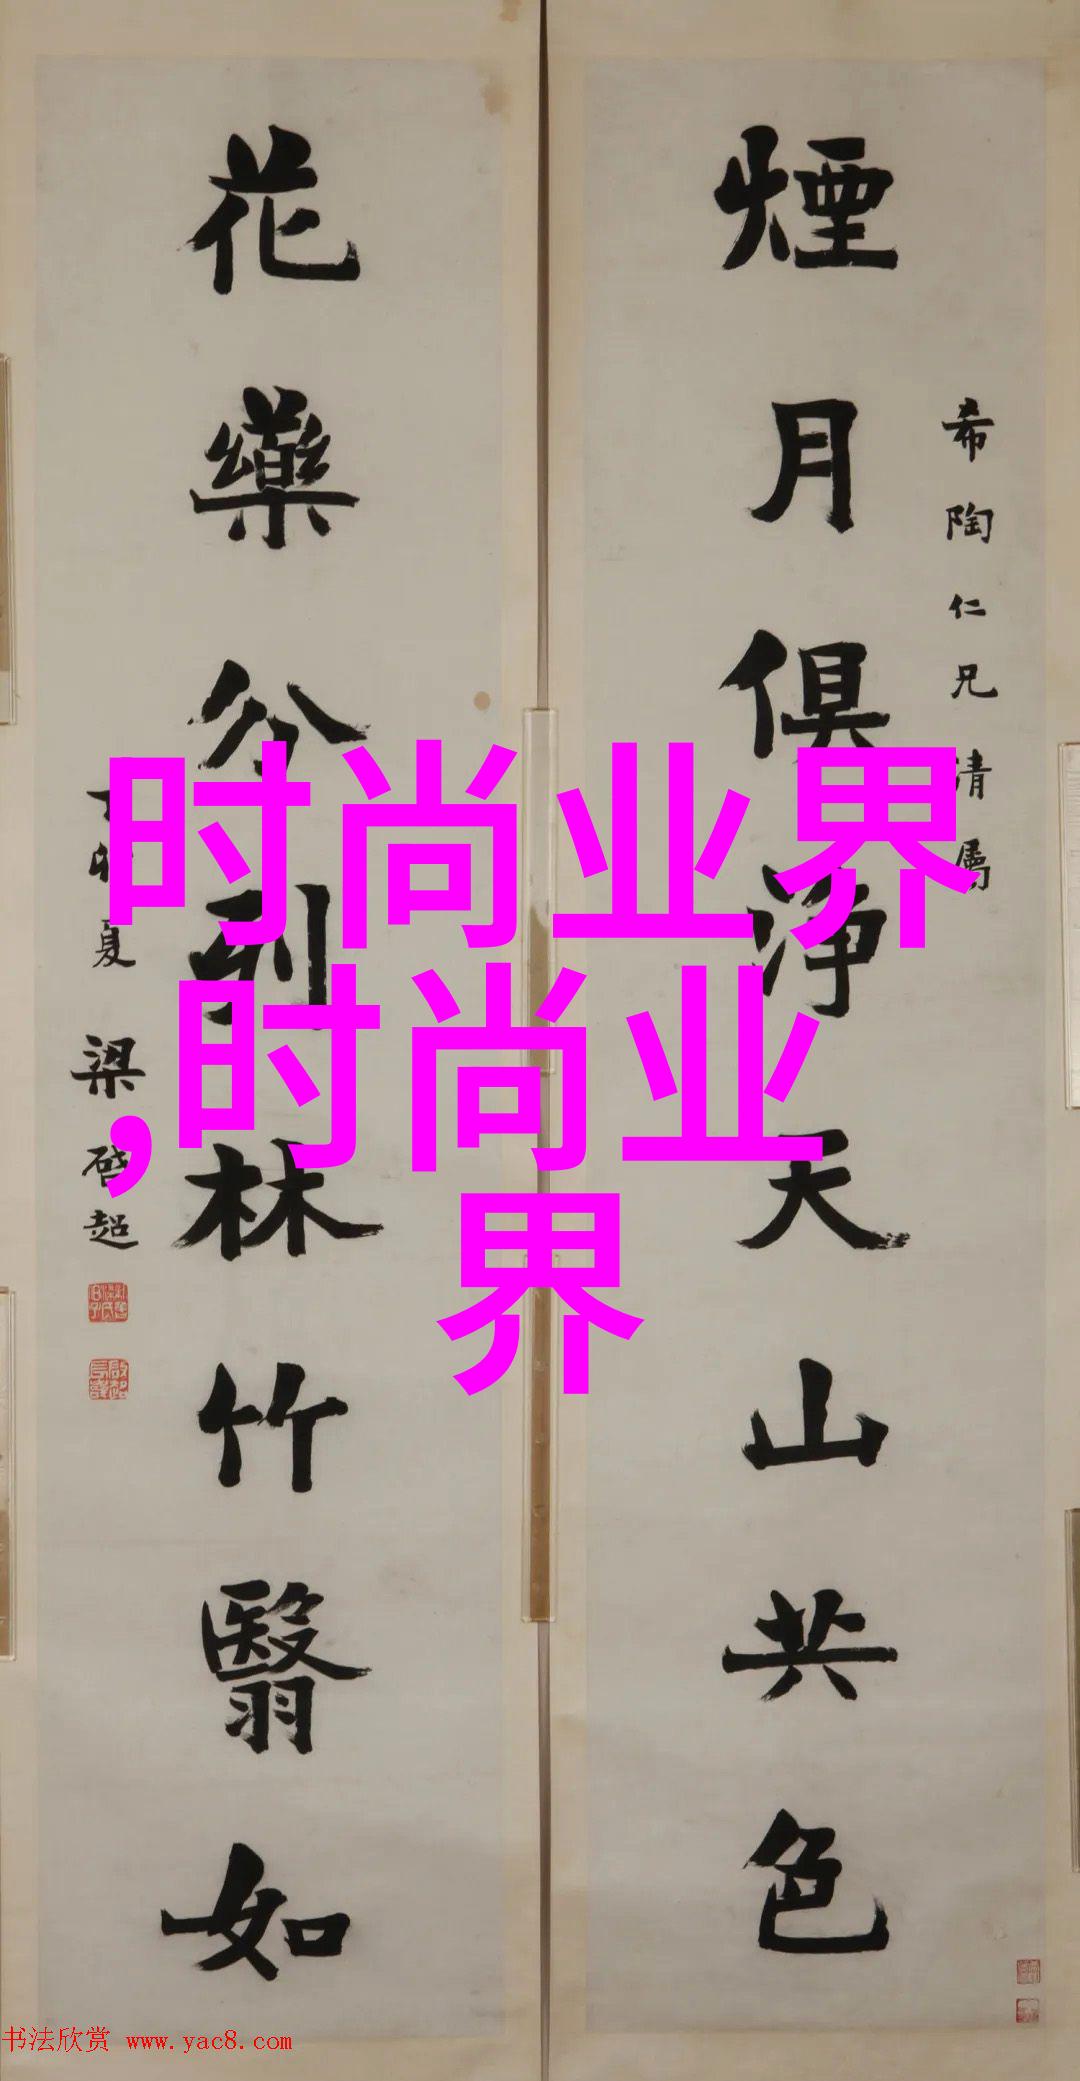 煙月俱净天山共色
希陶仁兄清属
花藥分列林竹翳如
夏 梁啓超
时尚业界
,时尚业
界
书法欣赏 www.yac8.com